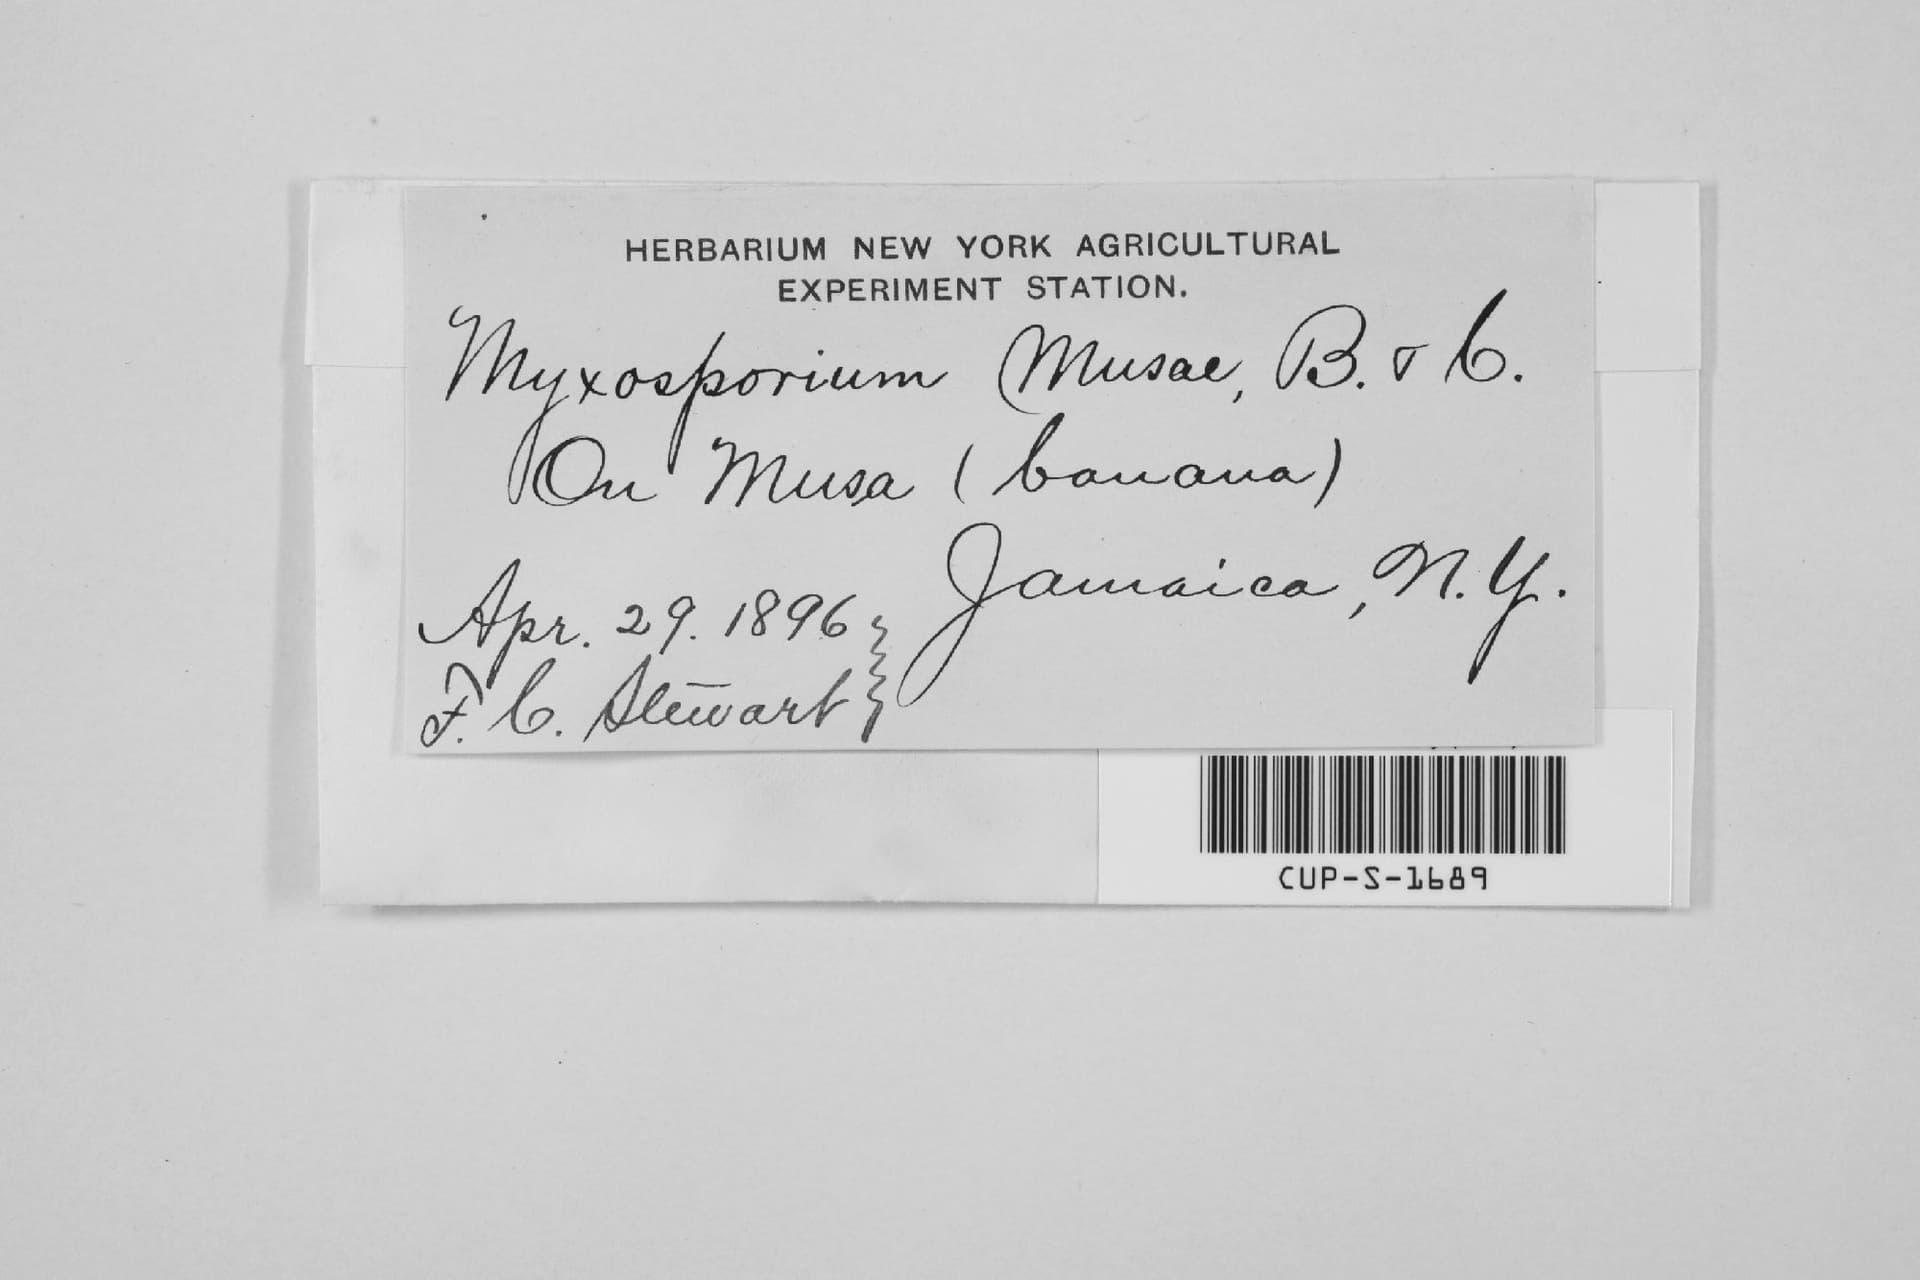 HERBARIUM NEW YORK AGRICULTURAL
EXPERIMENT STATION.
Myxosporium Musae, B. & C.
On Musa (banana)
Jamaica, N.Y.
Apr. 29. 1896
F. C. Stewart
CUP-S-1689